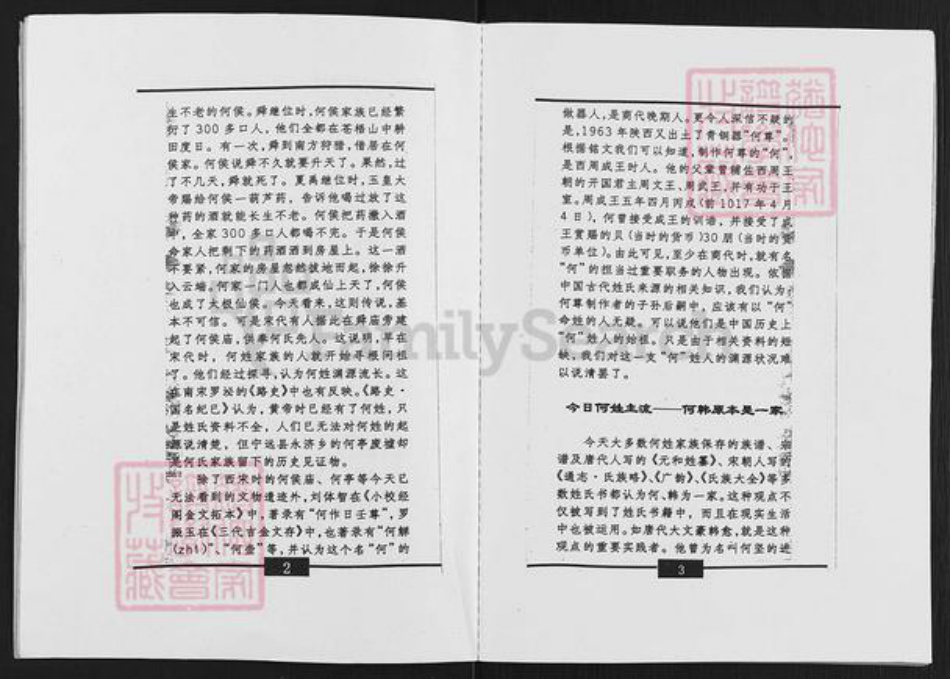 生不老的何侯。舜继位时,何侯家族已经繁
衍了300多口人。他们全都在苍梧山中耕
田度日。有一次,舜到南方狩猎,借居在何
侯家。何侯说舜不久就要升天了。果然,过
了不几天,舜就死了。夏禹继位时,玉皇大
帝赐给何侯一葫芦药,告诉他喝过放了这
种药的酒就能长生不老。何侯把药撒入酒
中,全家300多口人都喝不完。于是何侯
命家人把剩下的药酒洒到房屋上。这一洒
不要紧,何家的房屋忽然拔地而起,徐徐升
入云端。何家一门人也都成仙上天了,何侯
也成了太极仙侯。今天看来,这则传说,基
本不可信。可是宋代有人据此在舜庙旁建
起了何侯庙,供奉何氏先人。这说明,早在
宋代时,何姓家族的人就开始寻根问祖
了。他们经过探寻,认为何姓渊源流长。这
在南宋罗泌的《路史》中也有反映。《路史·
国名纪巳》认为,黄帝时已经有了何姓,只
是姓氏资料不全,人们已无法对何姓的起
源说清楚,但宁远县永济乡的何亭废墟却
是何氏家族留下的历史见证物。
除了西宋时的何侯庙、何亭等今天已
无法看到的文物遗迹外,刘体智在《小校经
阁金文拓本》中,著录有“何作日壬尊”,罗
振玉在《三代吉金文存》中,也著录有“何觯
(zhì)”、“何壶”等,并认为这个名“何”的
2
做器人,是商代晚期人。更令人深信不疑的
是,1963年陕西又出土了青铜器“何尊”。
根据铭文我们可以知道,制作何尊的“何”,
是西周成王时人。他的父辈曾辅佐西周王
朝的开国君主周文王、周武王,并有功于王
室。周成王五年四月丙戌(前1017年4月
4日),何曾接受成王的训诰,并接受了成
王赏赐的贝(当时的货币)30朋(当时的货
币单位)。由此可见,至少在商代时,就有名
“何”的担当过重要职务的人物出现。依据
中国古代姓氏来源的相关知识,我们认为,
何尊制作者的子孙后嗣中,应该有以“何”
命姓的人无疑。可以说他们是中国历史上
“何”姓人的始祖。只是由于相关资料的短
缺,我们对这一支“何”姓人的渊源状况难
以说清罢了。
今日何姓主流——何韩原本是一家
今天大多数何姓家族保存的族谱、宗
谱及唐代人写的《元和姓纂》、宋朝人写的
《通志·氏族略》、《广韵》、《氏族大全》等多
数姓氏书都认为何、韩为一家。这种观点不
仅被写到了姓氏书籍中,而且在现实生活
中也被运用。如唐代大文豪韩愈,就是这种
观点的重要实践者。他曾为名叫何坚的进
3
FamilySearch